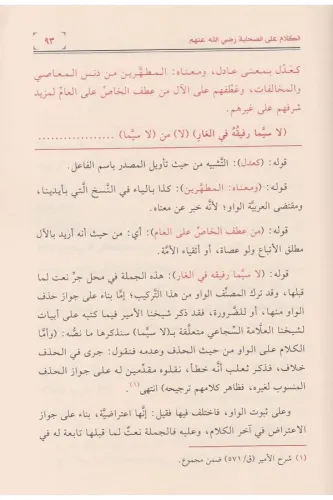 الكلام على الصحابة رضي الله عنهم
٩٣
كَعَدْلٍ بمعنى عادل، ومعناه: المطهَّرين من دنس المعاصي
والمخالفات، وعَطْفهم على الآل من عطف الخاصِّ على العامِّ لمزيد
شرفهم على غيرهم.
(لا سيَّما رفيقُهُ في الغارِ) (لا) من (لا سيَّما) ..................
قوله: (كعدل): التَّشبيه من حيث تأويل المصدر باسم الفاعل.
قوله: (ومعناه: المطهَّرين): كذا بالياء في النُّسخ الَّتي بأيدينا،
ومقتضى العربيَّة الواو؛ لأنَّه خبر عن معناه.
قوله: (من عطف الخاصِّ على العامِ): أي: من حيث أنه أريد بالآل
مطلق الأتباع ولو عصاة، أو أتقياء الأمَّة.
قوله: (لا سيَّما رفيقه في الغار): هذه الجملة في محل جرِّ نعت لما
قبلها، وقد ترك المصنِّف الواو من هذا التَّركيب؛ إمَّا بناء على جواز حذف
الواو منها، أو للضَّرورة، فقد ذكر شيخنا الأمير فيما كتبه على أبيات
لشيخنا العلَّامة السُّجاعي متعلِّقة بـ(لا سيَّما) سنذكرها ما نصُّه: (وأمَّا
الكلام على الواو من حيث الحذف وعدمه فنقول: جرى في الحذف
خلاف، فذكر ثعلب أنَّه خطأ، نقلوه مقدِّمين له على جواز الحذف
المنسوب لغيره، فظاهر كلامهم ترجيحه) انتهى(١).
وعلى ثبوت الواو، فاختلف فيها فقيل: إنَّها اعتراضيَّة، بناء على جواز
الاعتراض في آخر الكلام، وعليه فالجملة نعتٌ لما قبلها تابعة له في
(١) شرح الأمير (ق/ ٥٧١) ضمن مجموع.